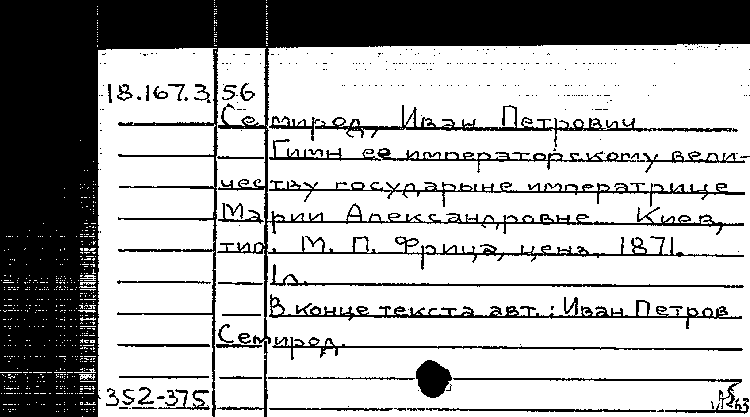 18.167.3.56
Семирод, Иван Петрович
Гимн ее императорскому вели-
честву государыне императрице
Марии Александровне. Киев,
тип. М. П. Фрица, ценз. 1871.
1 л.
В конце текста авт.: Иван Петров
Семирод.
352-375